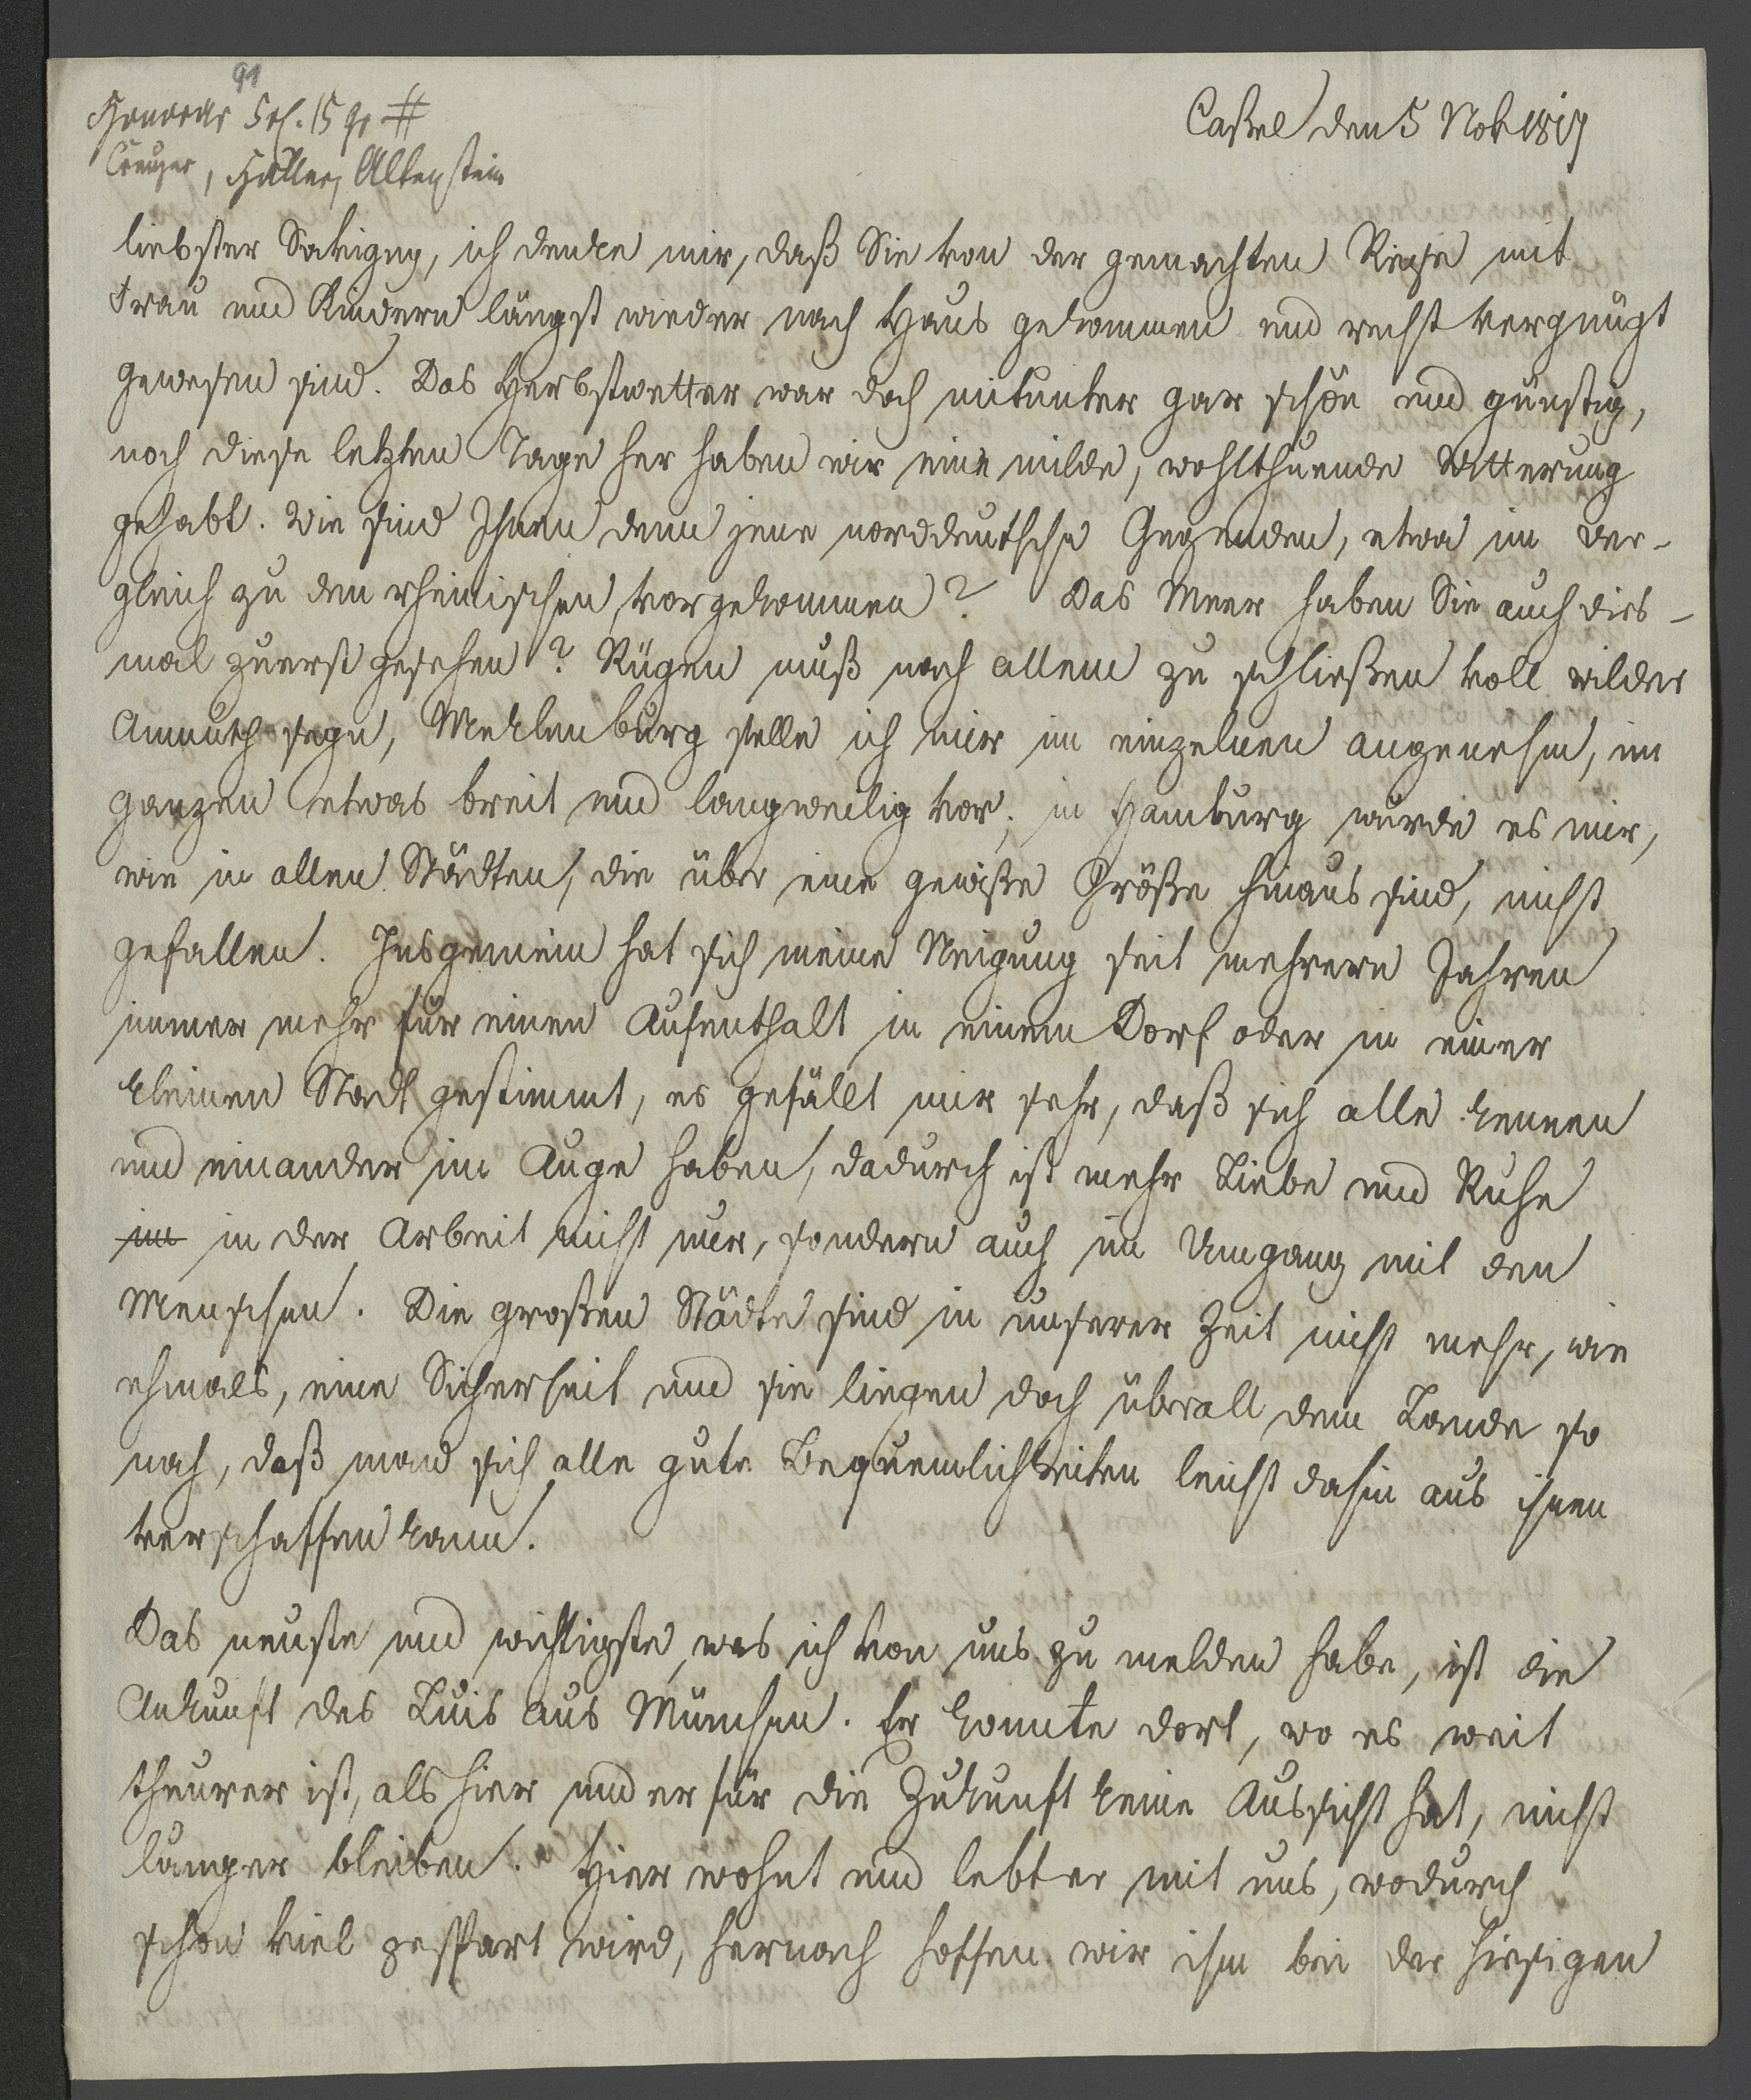 91
Honorar 5 rl. 15 gr #
Creuzer, Haller, Altenstein
Caßel den 5 Nov 1817
liebster Savigny, ich denke mir, daß Sie von der gemachten Reise mit
Frau und Kindern längst wieder nach Haus gekommen und recht vergnügt
gewesen sind. Das Herbstwetter war doch mitunter gar schön und günstig,
noch diese letzten Tage her haben wir eine milde, wohlthuende Witterung
gehabt. Wie sind Ihnen denn jene norddeutsche Gegenden, etwa im Ver-
gleich zu den rheinischen, vorgekommen? Das Meer haben Sie auch dies-
mal zuerst gesehen? Rügen muß nach allem zu schließen voll wilder
Anmuth seyn, Meklenburg stelle ich mir im einzelnen angenehm, im
ganzen etwas breit und langweilig vor; in Hamburg würde es mir,
wie in allen Städten, die über eine gewiße Größe hinaus sind, nicht
gefallen. Insgemein hat sich meine Neigung seit mehrern Jahren
immer mehr für einen Aufenthalt in einem Dorf oder in einer
kleinen Stadt gestimmt, es gefällt mir sehr, daß sich alle kennen
und einander im Auge haben, dadurch ist mehr Liebe und Ruhe
im in der Arbeit nicht nur, sondern auch im Umgang mit den
Menschen. Die großen Städte sind in unserer Zeit nicht mehr, wie
ehmals, eine Sicherheit und sie liegen doch überall dem Lande so
nah, daß man sich alle gute Bequemlichkeiten leicht dahin aus ihnen
verschaffen kann.
Das neuste und wichtigste, was ich von uns zu melden habe, ist die
Ankunft des Luis aus München. Er konnte dort, wo es weit
theurer ist, als hier und er für die Zukunft keine Aussicht hat, nicht
länger bleiben. Hier wohnt und lebt er mit uns, wodurch
schon viel gespart wird, hernach hoffen wir ihm bei der hiesigen